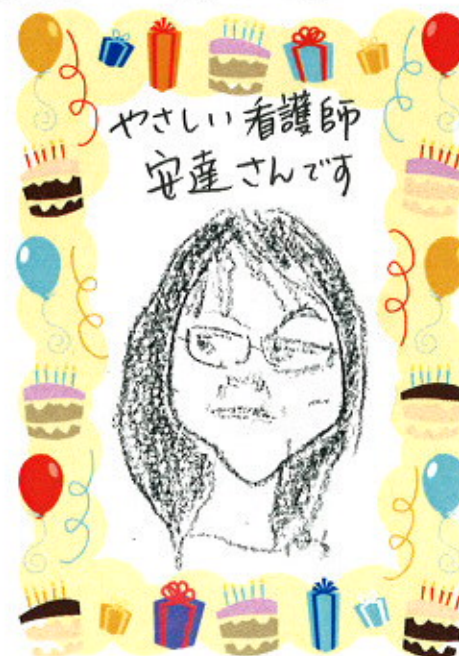 やさしい看護師
安達さんです